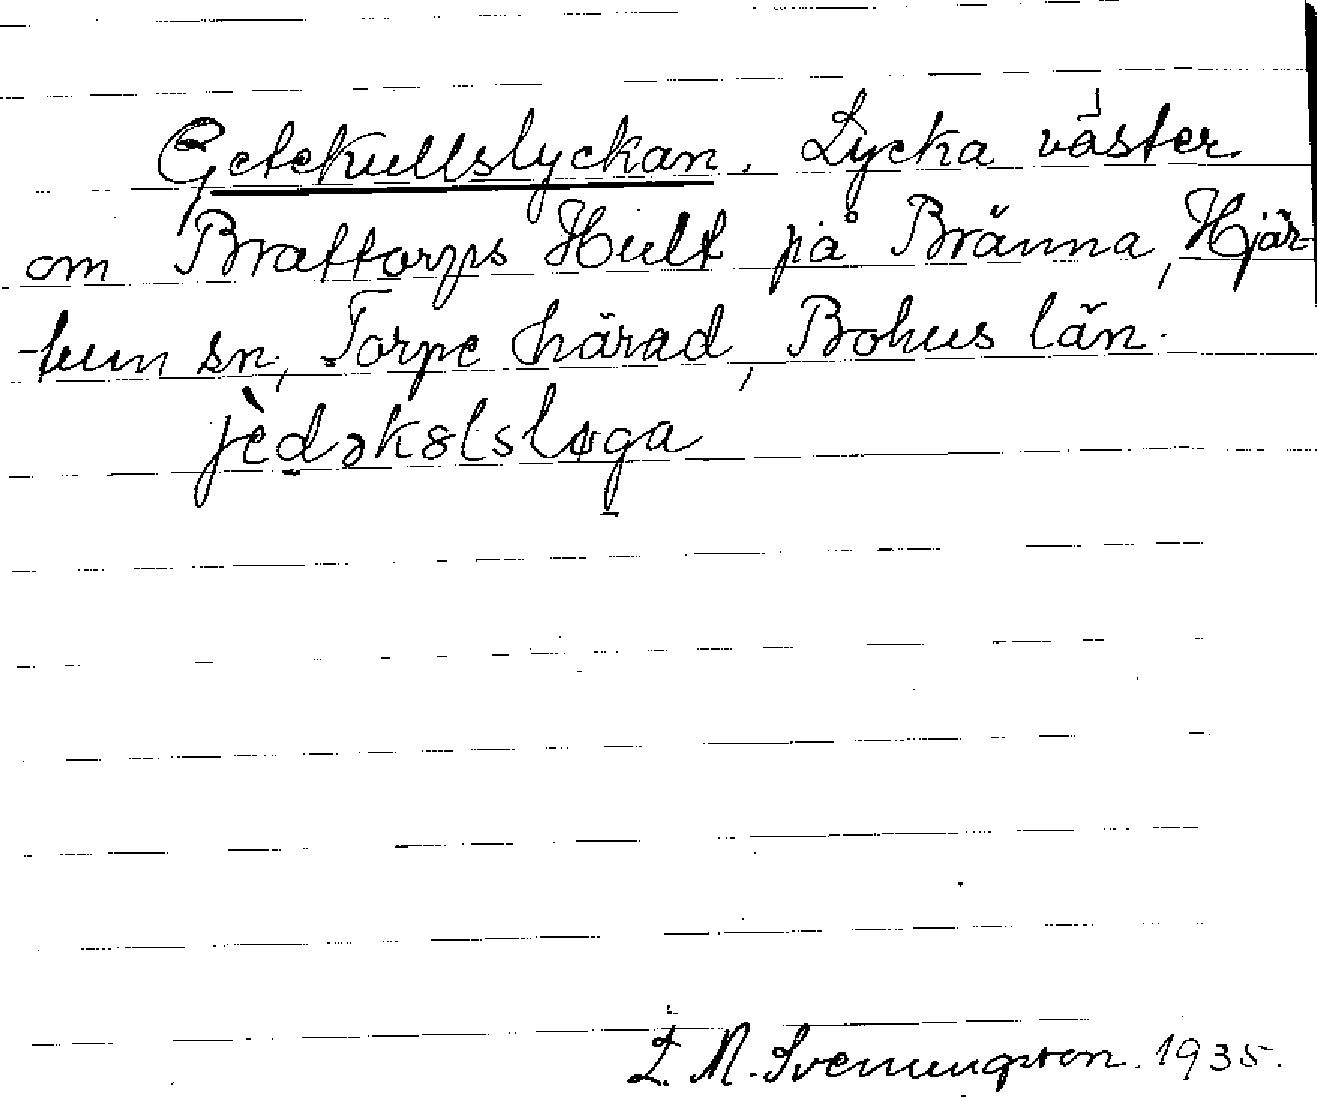 Getekullslyckan. Lycka väster
om Brattorps Hult på Bränna, Hjär-
tum sn, Torpe härad, Bohus län.
jèd̠əkɷlslɷg̠a
L. N. Svenungsson. 1935.